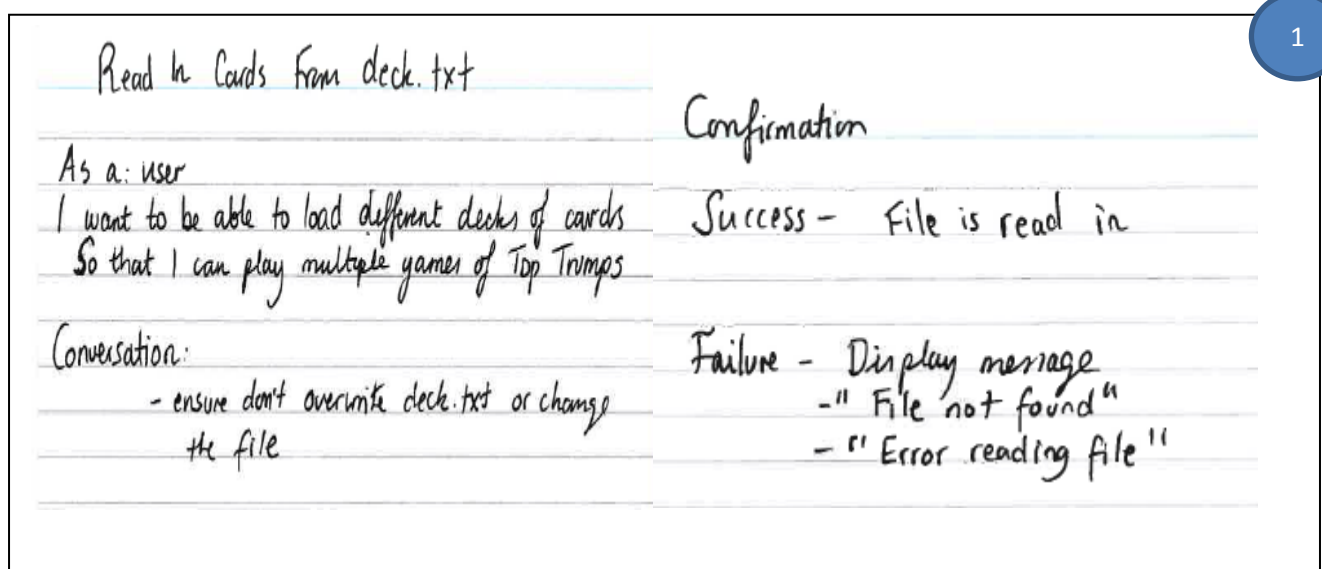 1
Read In Cards From deck.txt
As a: user
I want to be able to load different decks of cards
So that I can play multiple games of Top Trumps
Conversation:
- ensure don't overwrite deck.txt or change
the file
Confirmation
Success - File is read in
Failure - Display message
- " File not found"
- " Error reading file "